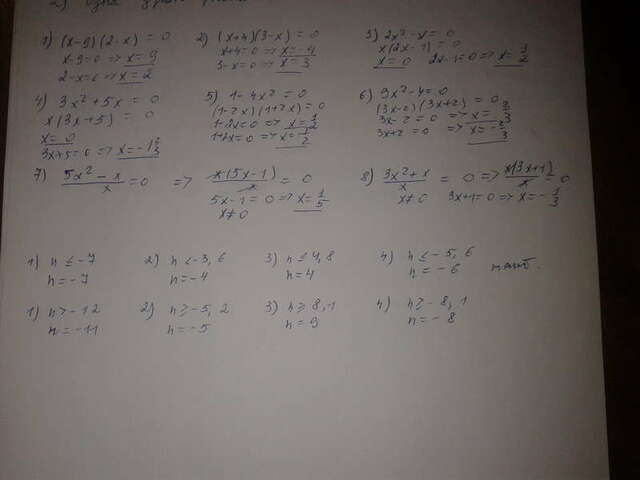 1) (x-9)(2-x) = 0
x-9=0 => x=9
2-x=0 => x=2
2) (x+4)(3-x) = 0
x+4=0 => x=-4
3-x=0 => x=3
3) 2x²-x=0
x(2x-1)=0
x=0 2x-1=0 => x=1/2
4) 3x²+5x = 0
x(3x+5) = 0
x=0
3x+5=0 => x=-1 2/3
5) 1-4x²=0
(1-2x)(1+2x)=0
1-2x=0 => x=1/2
1+2x=0 => x=-1/2
6) 9x²-4=0
(3x-2)(3x+2) = 0
3x-2=0 => x=2/3
3x+2=0 => x=-2/3
7) (5x²-x)/x=0 => x(5x-1)/x = 0
5x-1=0 => x=1/5
x≠0
8) (3x²+x)/x = 0 => x(3x+1)/x = 0
x≠0 3x+1=0 => x=-1/3
1) n≤-7
n=-7
2) n<-3,6
n=-4
3) n≤4,8
n=4
4) n≤-5,6
n=-6
наиб.
1) n>-12
n=-11
2) n≥-5,2
n=-5
3) n≥8,1
n=9
4) n≥-8,1
n=-8